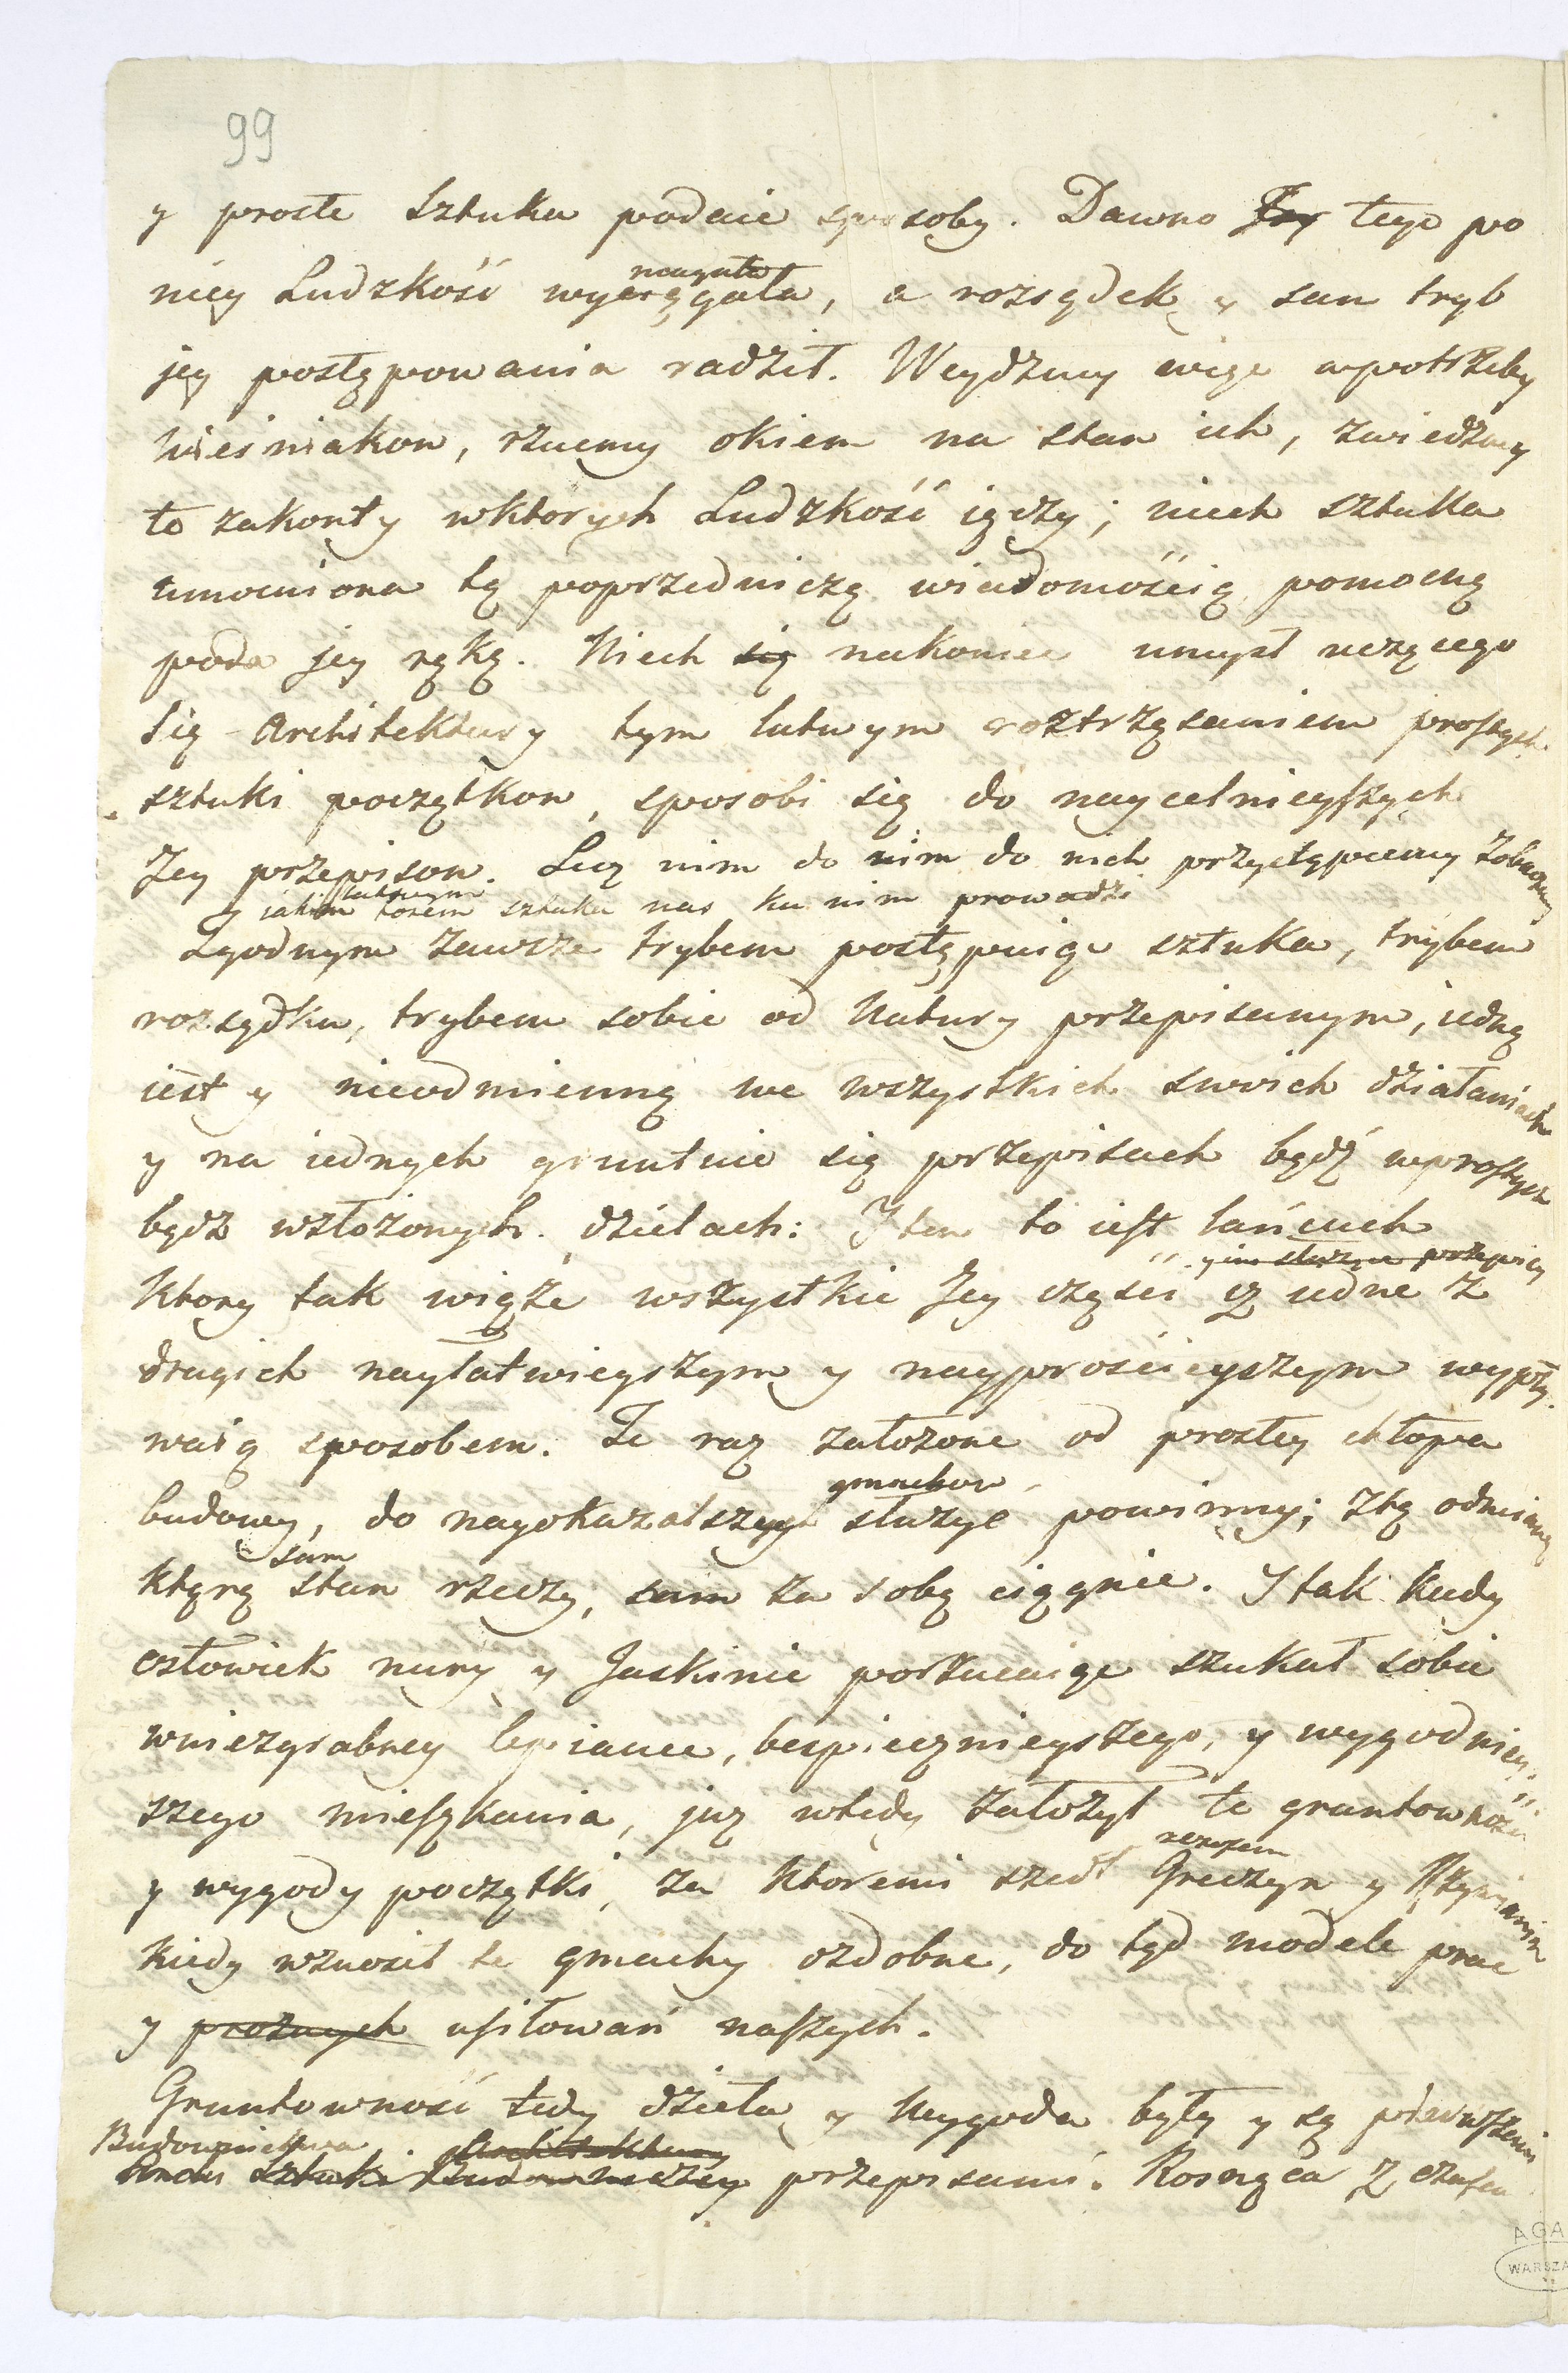 99
y proste sztuka podaie sposoby. Dawno Jey tego po
niey Ludzkość wyciągała, a rozsądek y sam tryb
jey postępowania radził. Weydźmy więc w potrzeby
Wieśniakow, rzucmy okiem na stan ich, zwiedźmy
te zakonty w ktorych Ludzkość ięczy; niech sztuka
umocniona tą poprzedniczą wiadomością pomocną
poda jey rękę. Niech się nakoniec umysł uczącego
się Architektury tym łatwym roztrząsaniem prostych
sztuki początkow, sposobi się do naycelnieyszych
Jey przepisow. Lecz nim do nim do nich przystąpiemy zobaczmy
łatwym
y iakim torem sztuka nas ku nim prowadzi
Zgodnym zawsze trybem postępuiąc sztuka, trybem
rozsądku, trybem sobie od Natury przepisanym, iedną
iest y nieodmienną we wszystkich swoich działaniach
y na iednych gruntuie się przepisach bądź w prostych
bądz w złożonych dziełach: Y ten to iest łańcuch
przepisy
ktory tak wiąże wszystkie Jey części iż iedne z
drugich nayłatwieyszym y nayprościeyszym wypły-
waią sposobem. Te raz założone od prostey chłopa
gmachow
budowy, do nayokazalszych służyc powinny; z tą odmianą
sam
ktorą stan rzeczy, sam za sobą ciągnie. Y tak kiedy
człowiek nury y Jaskinie porzucaiąc szukał sobie
w niezgrabney lepiance, bespiecznieyszego, y wygodniey-
szego mieszkania, już wtedy założył te gruntowności
y wygody początki, za ktoremi szedł Greczyn y Rzymianin
kiedy wznosił te gmachy ozdobne, do tąd modele prac
y proznych usiłowań naszych.
Gruntowność tedy dzieła y Wygoda były y są pierwszemi
Budownictwa Architektury
sztuki przepisami. Rosnąca z czasem
AGA
WARSZA